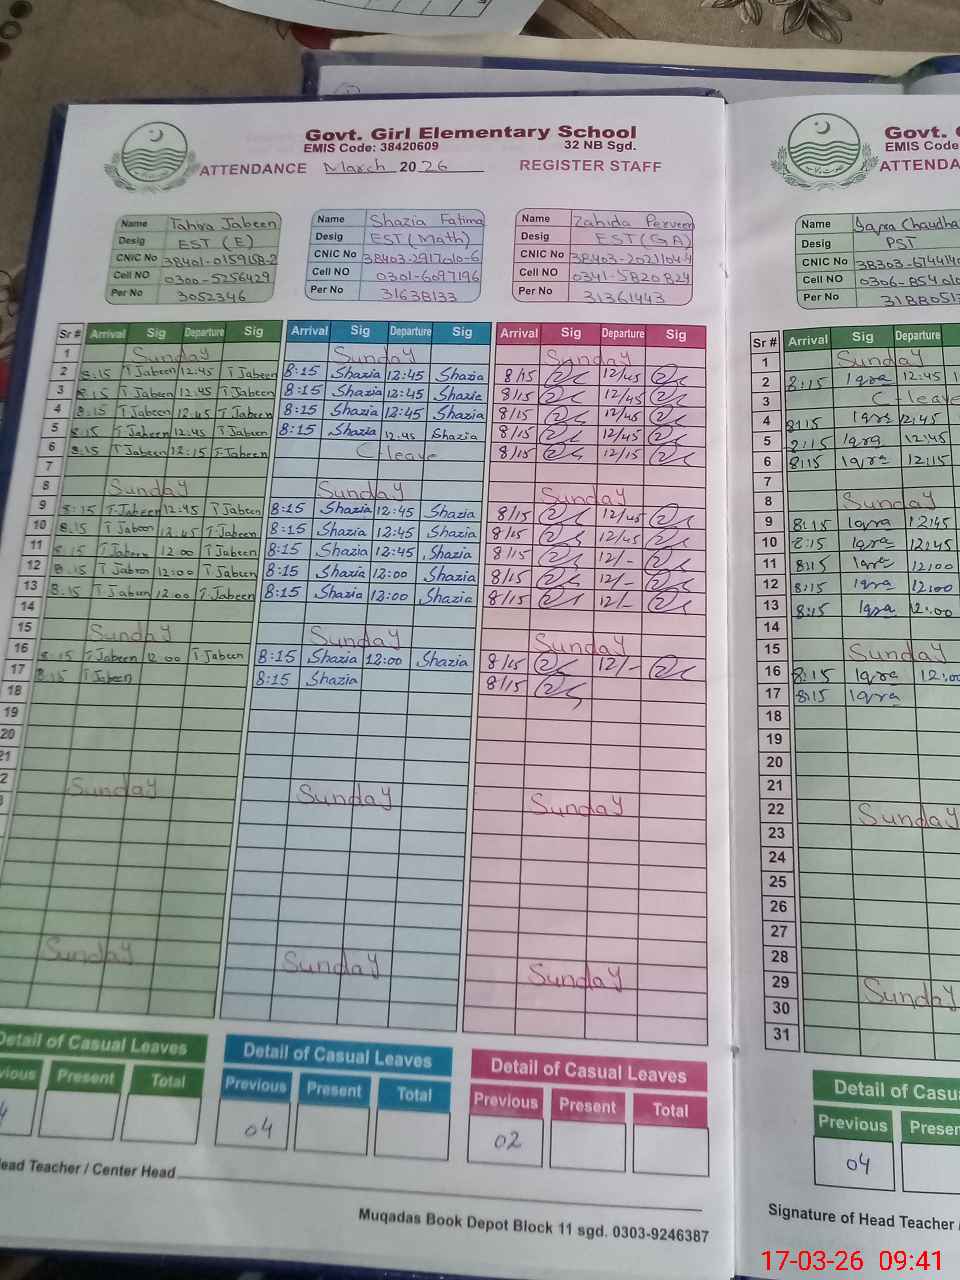 Govt. Girl Elementary School
EMIS Code: 38420609 32 NB Sgd.
ATTENDANCE March 2026 REGISTER STAFF
Name Tahira Jabeen
Desig EST (E)
CNIC No
Cell NO 0300-5256429
Per No 3052346
Name Shazia Fatima
Desig EST (Math)
CNIC No 38403-2917010-6
Cell NO 0301-6097196
Per No 31638133
Name Zahida Perveen
Desig EST (GA)
CNIC No 38403-2021104-4
Cell NO 0341-5820824
Per No 31361443
Sr # Arrival Sig Departure Sig Arrival Sig Departure Sig Arrival Sig Departure Sig
1 Sunday Sunday Sunday
2 8:15 T Jabeen 12:45 T Jabeen 8:15 Shazia 12:45 Shazia 8/15 12/45
3 8:15 T Jabeen 12:45 T Jabeen 8:15 Shazia 12:45 Shazia 8/15 12/45
4 8:15 T Jabeen 12:45 T Jabeen 8:15 Shazia 12:45 Shazia 8/15 12/45
5 8:15 T Jabeen 12:45 T Jabeen 8:15 Shazia 12:45 Shazia 8/15 12/45
6 8:15 T Jabeen 12:15 T Jabeen C-leave 8/15 12/15
7
8 Sunday Sunday Sunday
9 8:15 T Jabeen 12:45 T Jabeen 8:15 Shazia 12:45 Shazia 8/15 12/45
10 8:15 T Jabeen 12:45 T Jabeen 8:15 Shazia 12:45 Shazia 8/15 12/45
11 8:15 T Jabeen 12 00 T Jabeen 8:15 Shazia 12:45 Shazia 8/15 12/-
12 8:15 T Jabeen 12:00 T Jabeen 8:15 Shazia 12:00 Shazia 8/15 12/-
13 8:15 T Jabeen 12 00 T Jabeen 8:15 Shazia 12:00 Shazia 8/15 12/-
14
15 Sunday Sunday Sunday
16 8:15 T Jabeen 12 00 T Jabeen 8:15 Shazia 12:00 Shazia 8/15 12/-
17 8:15 T Jabeen 8:15 Shazia 8/15
18
19
20
21
2 Sunday Sunday Sunday
Sunday Sunday Sunday
Detail of Casual Leaves Detail of Casual Leaves Detail of Casual Leaves
Present Total Previous Present Total Previous Present Total
04 02
Head Teacher / Center Head
Muqadas Book Depot Block 11 sgd. 0303-9246387
Govt.
EMIS Code
ATTENDA
Name Iqra Chaudha
Desig PST
CNIC No
Cell NO 0306-854
Per No
Sr # Arrival Sig Departure
1 Sunday
2 8:15 Iqra 12:45
3 C-leave
4 8:15 Iqra 12:45
5 8:15 Iqra 12:45
6 8:15 Iqra 12:15
7
8 Sunday
9 8:15 Iqra 12:45
10 8:15 Iqra 12:45
11 8:15 Iqra 12:00
12 8:15 Iqra 12:00
13 8:15 Iqra 12:00
14
15 Sunday
16 8:15 Iqra 12:00
17 8:15 Iqra
18
19
20
21
22 Sunday
23
24
25
26
27
28
29 Sunday
30
31
Detail of Casua
Previous Presen
04
Signature of Head Teacher /
17-03-26 09:41